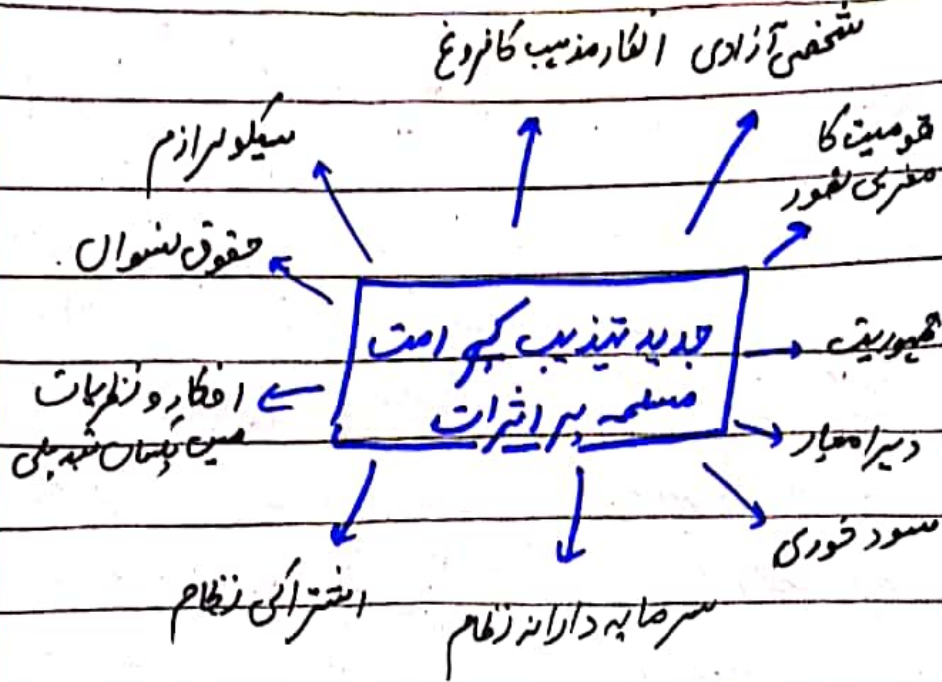 شخصی آزادی
انکار مذہب کا فروغ
سیکولرازم
قومیت کا
مغربی تصور
حقوق نسواں
جدید تہذیب کے امت
مسلمہ پر اثرات
جمہوریت
افکار و نظریات
میں یکساں تبدیلی
دہرا معیار
سود خوری
اشتراکی نظام
سرمایہ دارانہ نظام